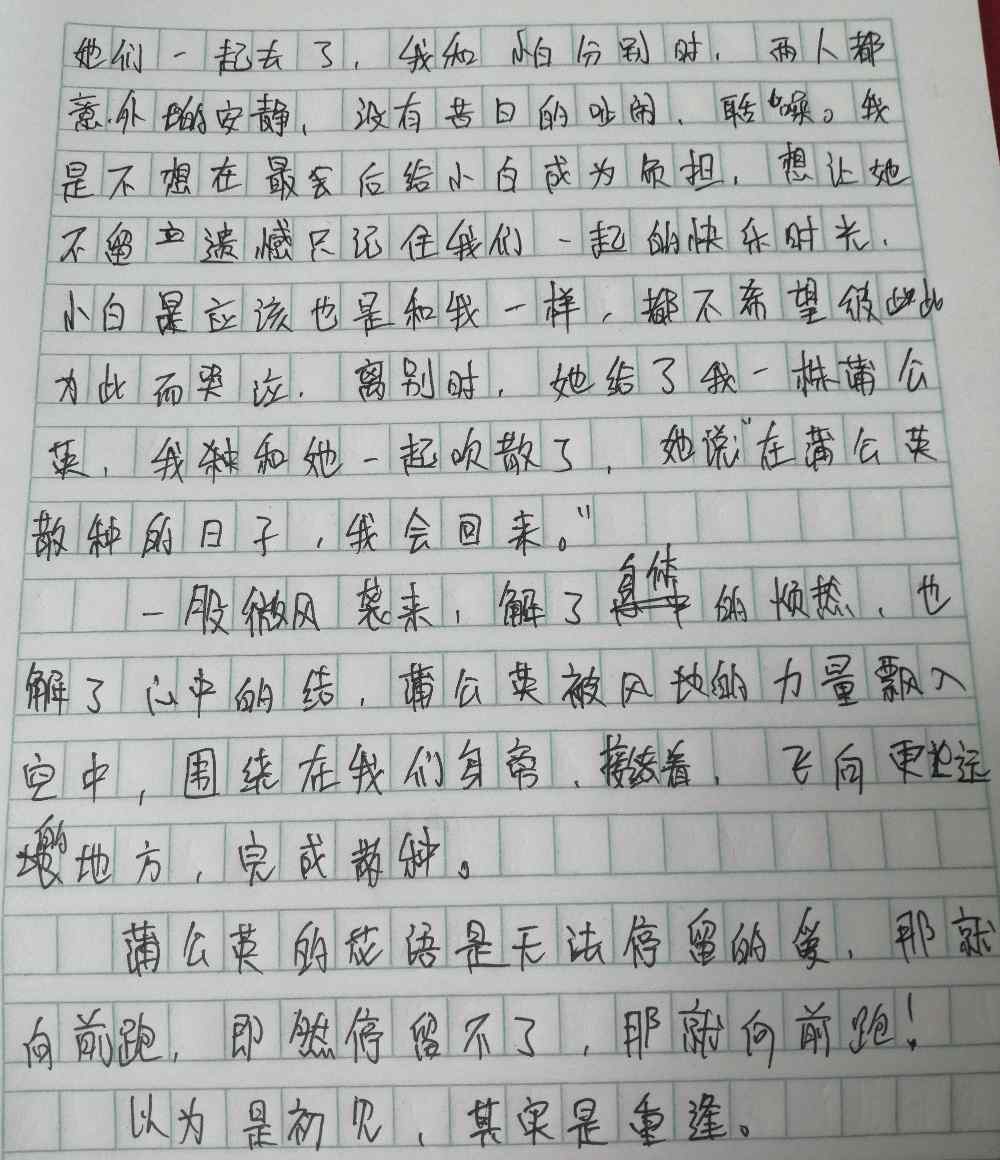 她们一起去了，我和小白分别时，两人都
意外的安静，没有苦日的吵闹、聒噪。我
是不想在最后给小白成为负担，想让她
不留遗憾只记住我们一起的快乐时光，
小白应该也是和我一样，都不希望彼此
为此而哭泣。离别时，她给了我一株蒲公
英，我和她一起吹散了，她说“在蒲公英
散种的日子，我会回来。”
一股微风袭来，解了身体的烦热，也
解了心中的结，蒲公英被风的力量飘入
空中，围绕在我们身旁，接着，飞向更远
的地方，完成散种。
蒲公英的花语是无法停留的爱，那就
向前跑，即然停留不了，那就向前跑！
以为是初见，其实是重逢。